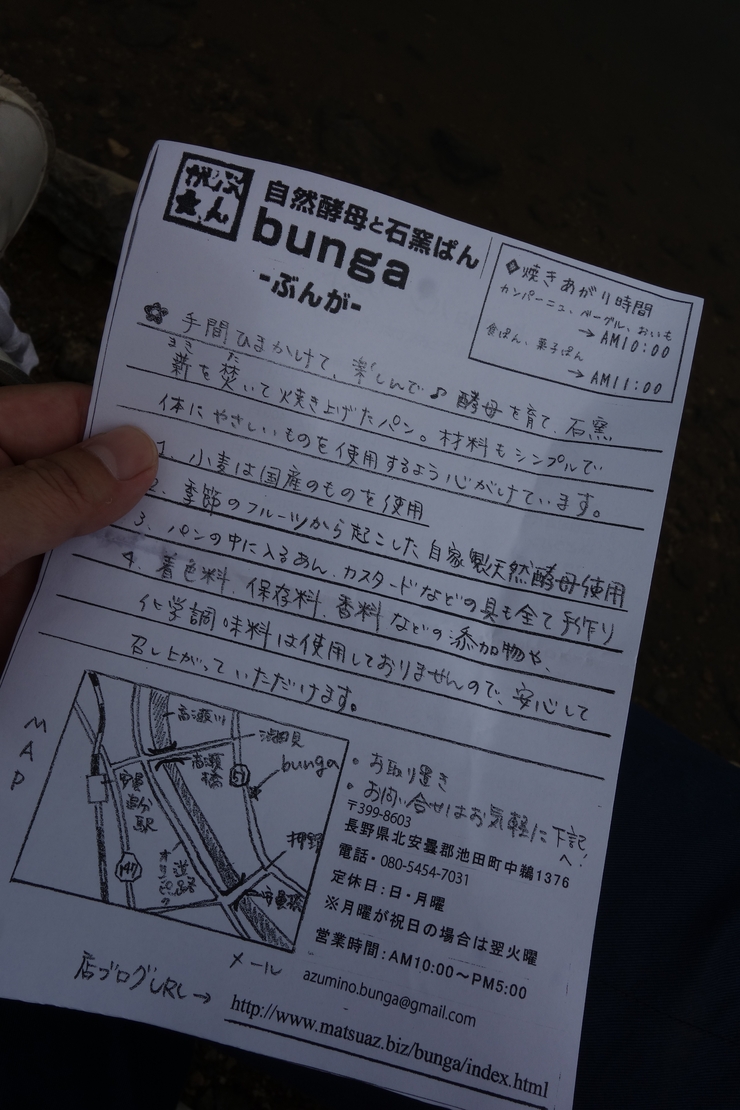 がぶ
もん
自然酵母と石窯ぱん
bunga
-ぶんが-
◆焼きあがり時間
カンパーニュ、ベーグル、おいも
→AM10:00
食ぱん、菓子ぱん
→AM11:00
手間ひまかけて、楽しんで♪酵母を育て、石窯
まき た
薪を焚いて焼き上げたパン。材料もシンプルで
体にやさしいものを使用するよう心がけています。
1. 小麦は国産のものを使用
2. 季節のフルーツから起こした自家製天然酵母使用
3. パンの中に入るあん、カスタードなどの具も全て手作り
4. 着色料、保存料、香料などの添加物や、
化学調味料は使用しておりませんので、安心して
召し上がっていただけます。
MAP
高瀬川
高瀬橋
bunga
51
安曇追分駅
147
オリンピック道路
押野
・お取り置き
・お問い合せはお気軽に下記へ!
〒399-8603
長野県北安曇郡池田町中鵜1376
電話・080-5454-7031
定休日:日・月曜
※月曜が祝日の場合は翌火曜
営業時間:AM10:00~PM5:00
メール
azumino.bunga@gmail.com
店ブログURL→
http://www.matsuaz.biz/bunga/index.html